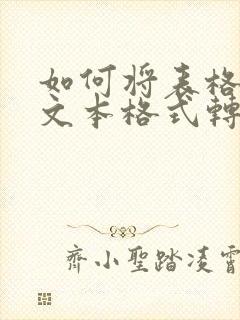 如何将表格
文本格式轉
齊小聖踏凌霄